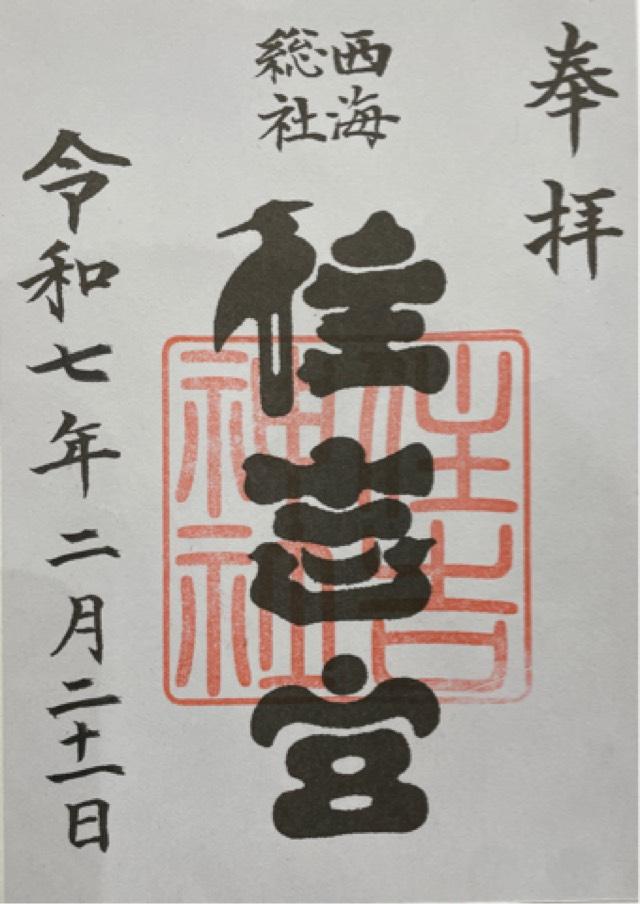 奉拝
西海
総社
住吉宮
住吉
神社
令和七年二月二十一日